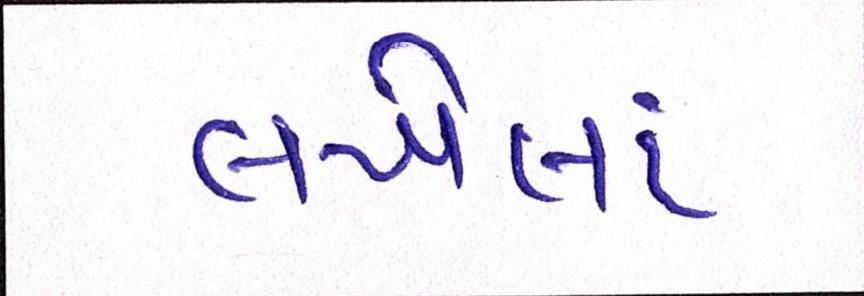 લખેલાં